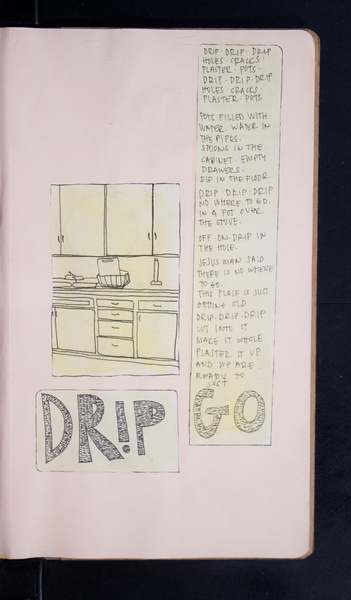 DRIP · DRIP · DRIP
HOLES · CRACKS ·
PLASTER · POTS ·
DRIP · DRIP · DRIP
HOLES · CRACKS
PLASTER · POTS
POTS FILLED WITH
WATER. WATER IN
THE PIPES.
SPOONS IN THE
CABINET · EMPTY
DRAWERS ·
DIP IN THE FLOOR.
DRIP · DRIP · DRIP
NO WHERE TO GO.
IN A POT OVER
THE STOVE.
OFF · ON · DRIP IN
THE HOLE.
JESUS MAN SAID
THERE IS NO WHERE
TO GO.
THIS PLACE IS JUST
GETTING OLD
DRIP · DRIP · DRIP
CUT INTO IT
MAKE IT WHOLE
PLASTER IT UP
AND WE ARE
READY TO
JUST
GO
DRIP